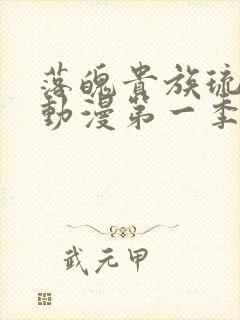 落魄貴族琉
動漫第一季
武元甲